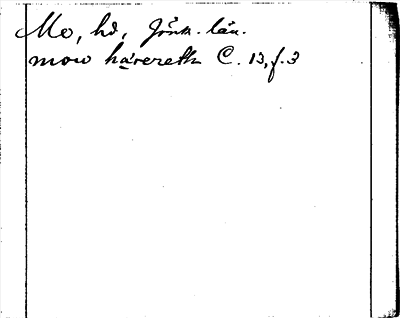 Mo, hd, Jönk. län.
mow härereth C. 13, f. 3